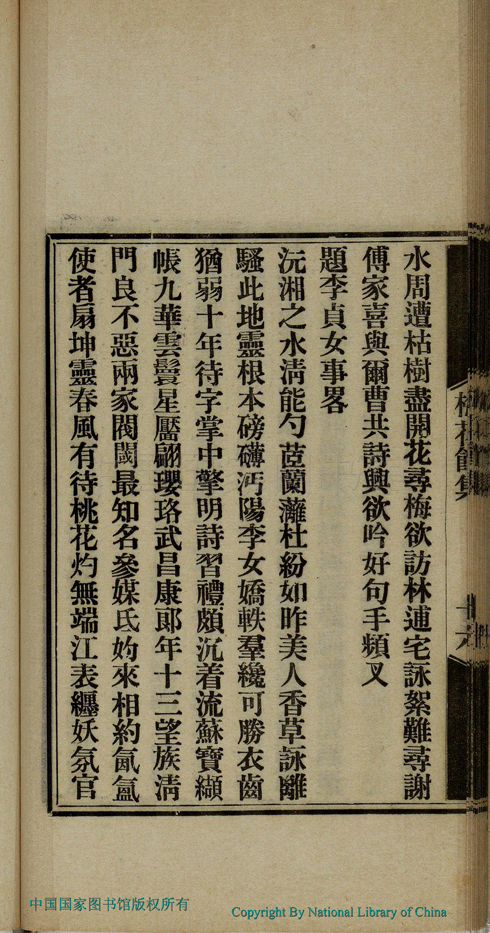 水周遭枯樹盡開花尋梅欲訪林逋宅詠絮難尋謝
傅家喜與爾曹共詩興欲吟好句手頻叉
題李貞女事畧
沅湘之水淸能勺茝蘭蘺杜紛如昨美人香草詠離
騷此地靈根本磅礴沔陽李女嬌軼羣纔可勝衣齒
猶弱十年待字掌中擎明詩習禮頗沉着流蘇寶纈
帳九華雲鬟星靨翩瓔珞武昌康郞年十三望族淸
門良不惡兩家閥閱最知名參媒氏妁來相約氤氳
使者扇坤靈春風有待桃花灼無端江表纏妖氛官
中国国家图书馆版权所有
Copyright By National Library of China